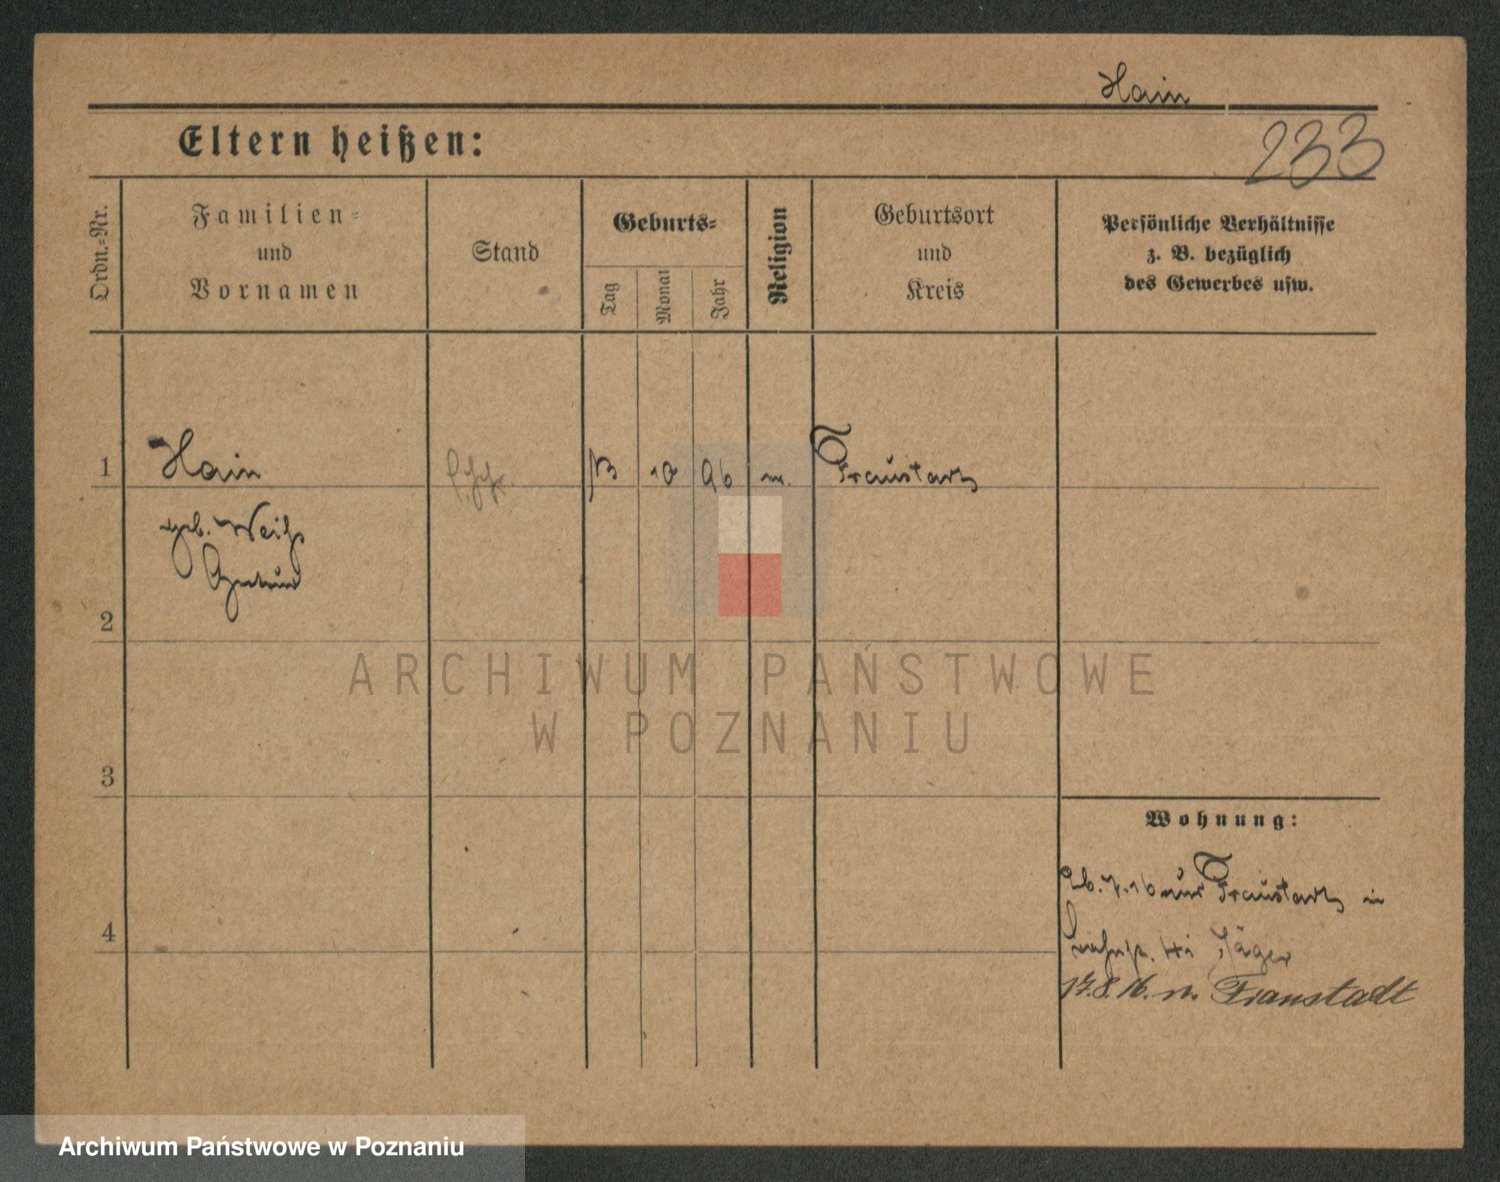 Hain
Eltern heißen:
233
Ordn.-Nr.
Familien-
und
Vornamen
Stand
Geburts-
Tag
Monat
Jahr
Religion
Geburtsort
und
Kreis
Persönliche Verhältnisse
z. B. bezüglich
des Gewerbes usw.
1
Hain
13
10
96
Fraustadt
geb. Weiß
2
3
4
Wohnung:
26.7.16 aus Fraustadt in
41 Jäger
17.8.16. n. Fraustadt
ARCHIWUM PAŃSTWOWE
W POZNANIU
Archiwum Państwowe w Poznaniu